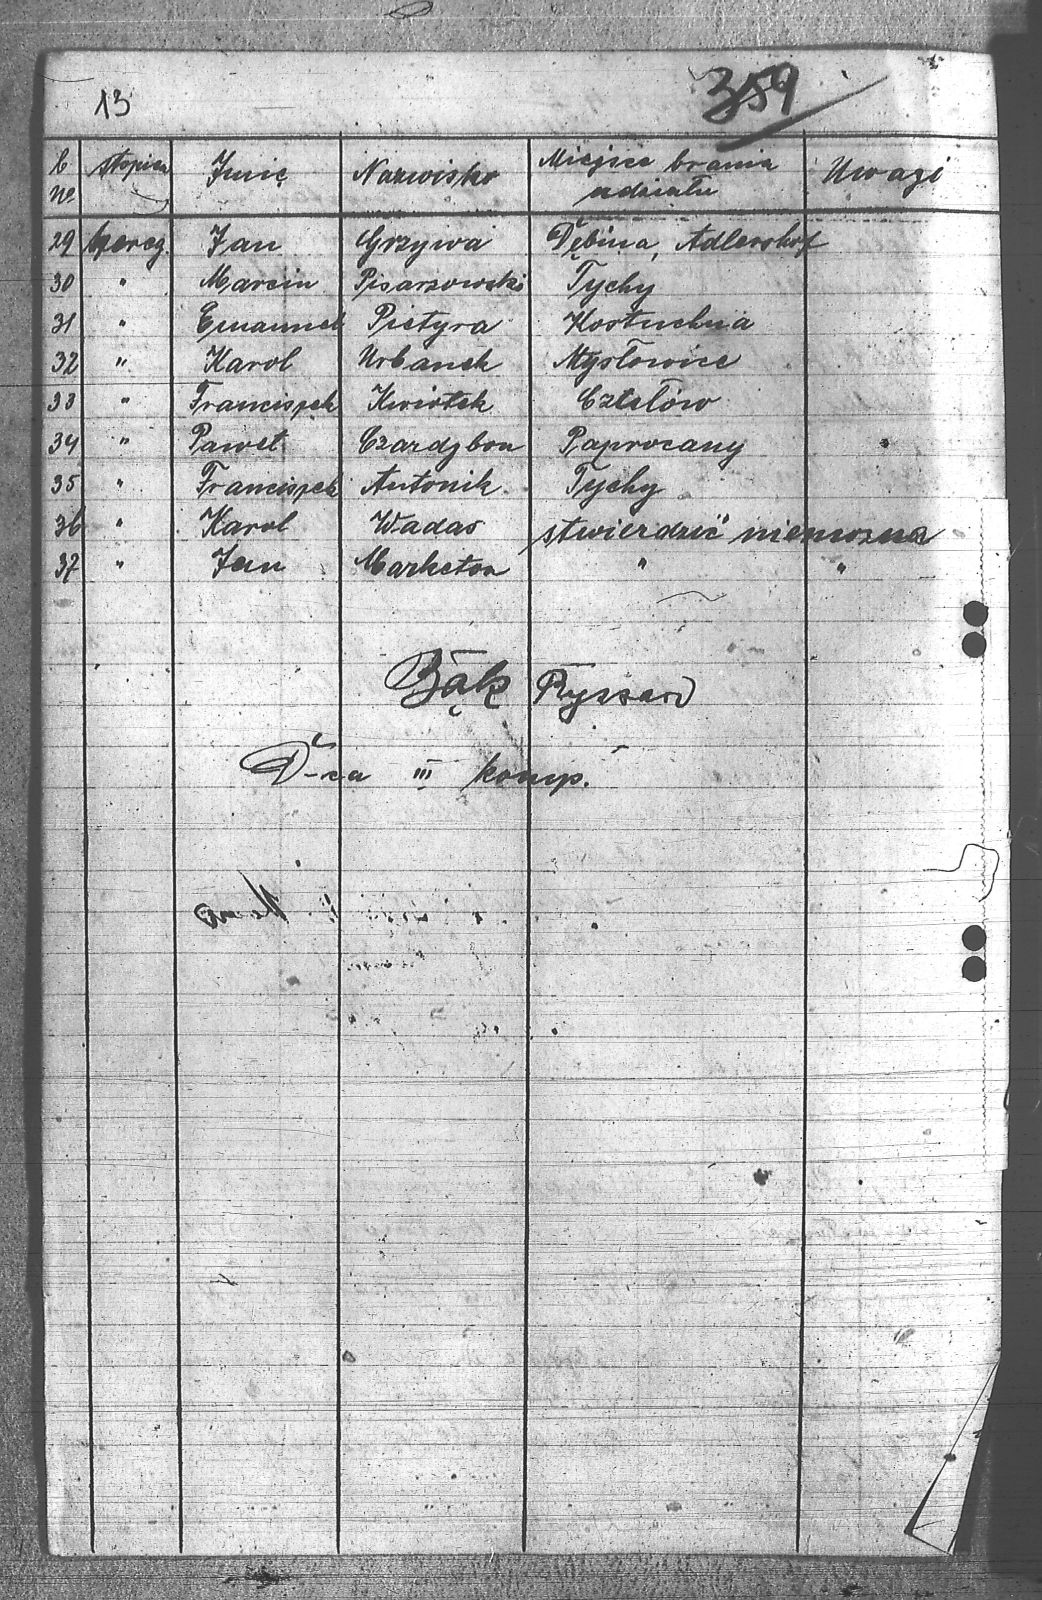 13
359
L No stopień Imię Nazwisko Miejsce brania udziału Uwagi
29 szereg. Jan Grzywa Dębina, Adlershof
30 " Marcin Pisarzowski Tychy
31 " Emanuel Pietyra Kostuchna
32 " Karol Urbanek Mysłowice
33 " Franciszek Kwiotek Czułów
34 " Paweł Czardybon Paprocany
35 " Franciszek Antonik Tychy
36 " Karol Wadas stwierdzić niemożna
37 " Jan Marketon " "
Bąk Ryszard
D-ca III komp.